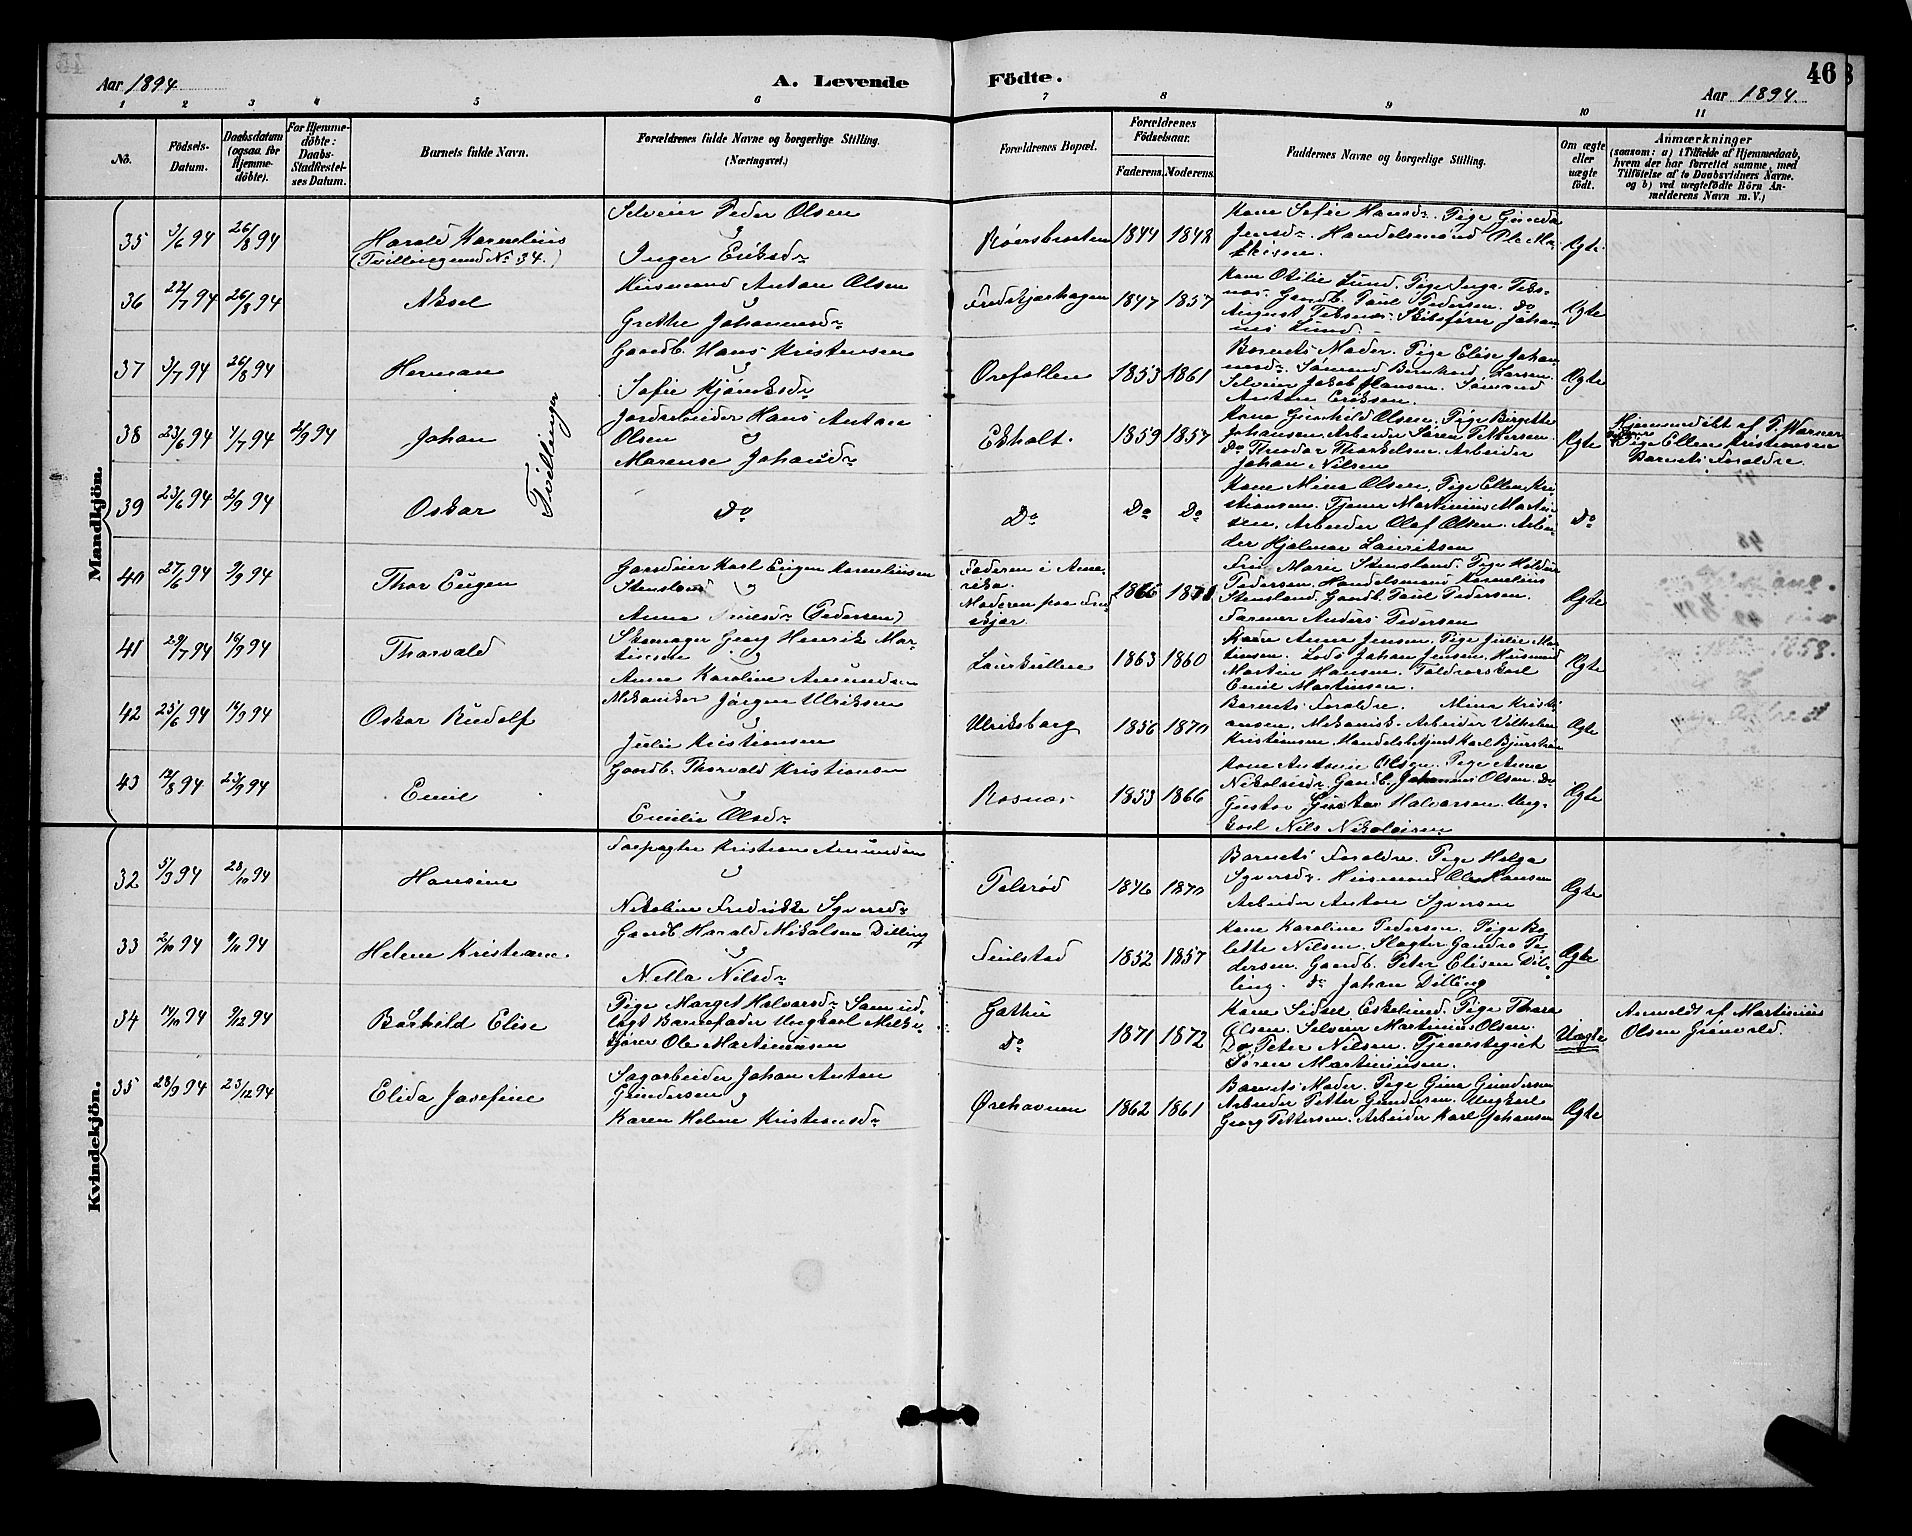 Aar 1894
A. Levende
Födte.
46
Aar 1894.
1 2 3 4 5 6 7 8 9 10 11
No.
Födsels-Datum.
Daabsdatum (ogsaa for Hjemme-döbte).
For Hjemme-döbte: Daabs-Stadfæstel-ses Datum.
Barnets fulde Navn.
Forældrenes fulde Navne og borgerlige Stilling.
(Næringsvei.)
Forældrenes Bopæl.
Forældrenes Födselsaar.
Faderens. Moderens.
Faddernes Navne og borgerlige Stilling.
Om ægte eller uægte födt.
Anmærkninger
(saasom: a) i Tilfælde af Hjemmedaab,
hvem der har forrettet samme, med
Tilföielse af to Daabsvidners Navne.
og b) ved uægtefödte Börn An-
melderens Navn m. V.)
Mandkjön.
35 3/6 94 26/8 94 Harald Kornelius
(Tvilling med No 34.)
Selveier Peder Olsen
Inger Eriksdr
1844 1848
Kone Sofie Hansdr. Pige Gunda
Jensdr. Handelsmand Ole Ma-
thisen.
Ægte
36 22/7 94 26/8 94 Aksel
Husmand Anton Olsen
Grethe Johannesdr
Fredskjærhagen 1847 1857
Kone Otilie Lund. Pige Inga Teks-
næs. Gaardb. Paul Pedersen. do
August Teksnæs. Skibsfører Johan-
nes Lund.
Ægte
37 3/7 94 26/8 94 Herman
Gaardb. Hans Kristensen
Sofie
Orefallen 1853 1861
Barnets Moder. Pige Elise Johan-
nesdr. Sömand Bernhard Larsen.
Selveier Jakob Hansen. Sömand
Anton Eriksen.
Ægte
Tvillinger
38 23/6 94 1/7 94 2/9 94 Johan
Jordarbeider Hans Anton
Olsen
Marense Johansdr
Ekholt. 1859 1857
Kone Gunhild Olsen. Pige Birgitte
Johansen. Arbeider Sören Pettersen.
Do Theodor Thorkelsen. Arbeider
Johan Nilsen
Ægte
Hjemmedöbt af
Pige Ellen Kristiansen
Barnets Forældre.
39 23/6 94 2/9 94 Oskar
Do
Do Do Do
Kone Mina Olsen. Pige Ellen Kri-
stiansen. Tjener Martinius Martin-
sen. Arbeider Olaf Olsen. Arbei-
der Hjalmar Lauritsen
Do
40 27/6 94 9/9 94 Thor Eugen
Gaardeier Karl Eugen Korneliusen
Stensland
Anna (Pedersen)
Faderen i Ame-
rika.
Moderen paa Fred-
skjær.
1865 1871
Fru Marie Stensland. Pige Helder
Pedersen. Handelsmand Kornelius
Stensland. Gaardb. Paul Pedersen.
Farmer Anders Pedersen
Ægte
41 29/7 94 16/9 94 Thorvald
Skomager Georg Henrik Mar-
tinsen
Anne Karoline Amundsen
Laurkullen 1863 1860
Kone Anne Jensen. Pige Julie Mar-
tinsen. Lods Johan Jensen. Husmand
Martin Hansen. Toldroerskarl
Emil Martinsen.
Ægte
42 25/6 94 16/9 94 Oskar Rudolf
Mekaniker Jörgen Ulriksen
Julie Kristiansen
Ulriksborg 1856 1870
Barnets Forældre. Mina Kristi-
ansen. Mekanisk Arbeider Vilhelm
Kristiansen. Handelsbetjent Karl
Ægte
43 12/8 94 23/9 94 Emil
Gaardb. Thorvald Kristiansen
Emilie Olsdr
Rosnæs 1853 1866
Kone Antonie Olsen. Pige Anne
Nikolaisdr. Gaardb. Johannes Olsen. Do
Gustav Halvorsen. Ung-
karl Nils Nikolaisen
Ægte
Kvindekjön.
32 5/9 94 28/10 94 Hansine
Kristian Amundsen
Nikoline Fredrikke Syversdr
Tolsröd 1846 1870
Barnets Forældre. Pige Helga
Syversdr. Husmand Ole Hansen
Arbeider Anton Syversen
Ægte
33 2/10 94 4/11 94 Helene Kristiane.
Gaardb. Harald Mikalsen Dilling
Nella Nilsdr
1852 1857
Kone Karoline Pedersen. Pige Bo-
lette Nilsen. Slagter Pe-
dersen. Gaardb. Peter Elisen Dil-
ling. do Johan Dilling
Ægte
34 14/10 94 9/12 94 Borhild Elise
Pige Marget Halvorsdr. Samt ud-
lagt Barnefader Ungkarl Melke-
kjører Ole Martiniusen
Gathu
Do
1871 1872
Kone Sidsel Eskelund. Pige Thora
Olsen. Selveier Martinius Olsen.
Do Peter Nilsen. Tjenestegut
Sören Martiniusen.
Uægte
Anmeldt af Martinius
Olsen Grönvold.
35 28/9 94 23/12 94 Elida Josefine
Sagarbeider Johan Anton
Gundersen
Karen Helene Kristensdr
Ørehavnen 1862 1861
Barnets Moder. Pige Gina Gundersen
Arbeider Petter Gundersen. Ungkarl
Georg Pettersen. Arbeider Karl Johansen
Ægte